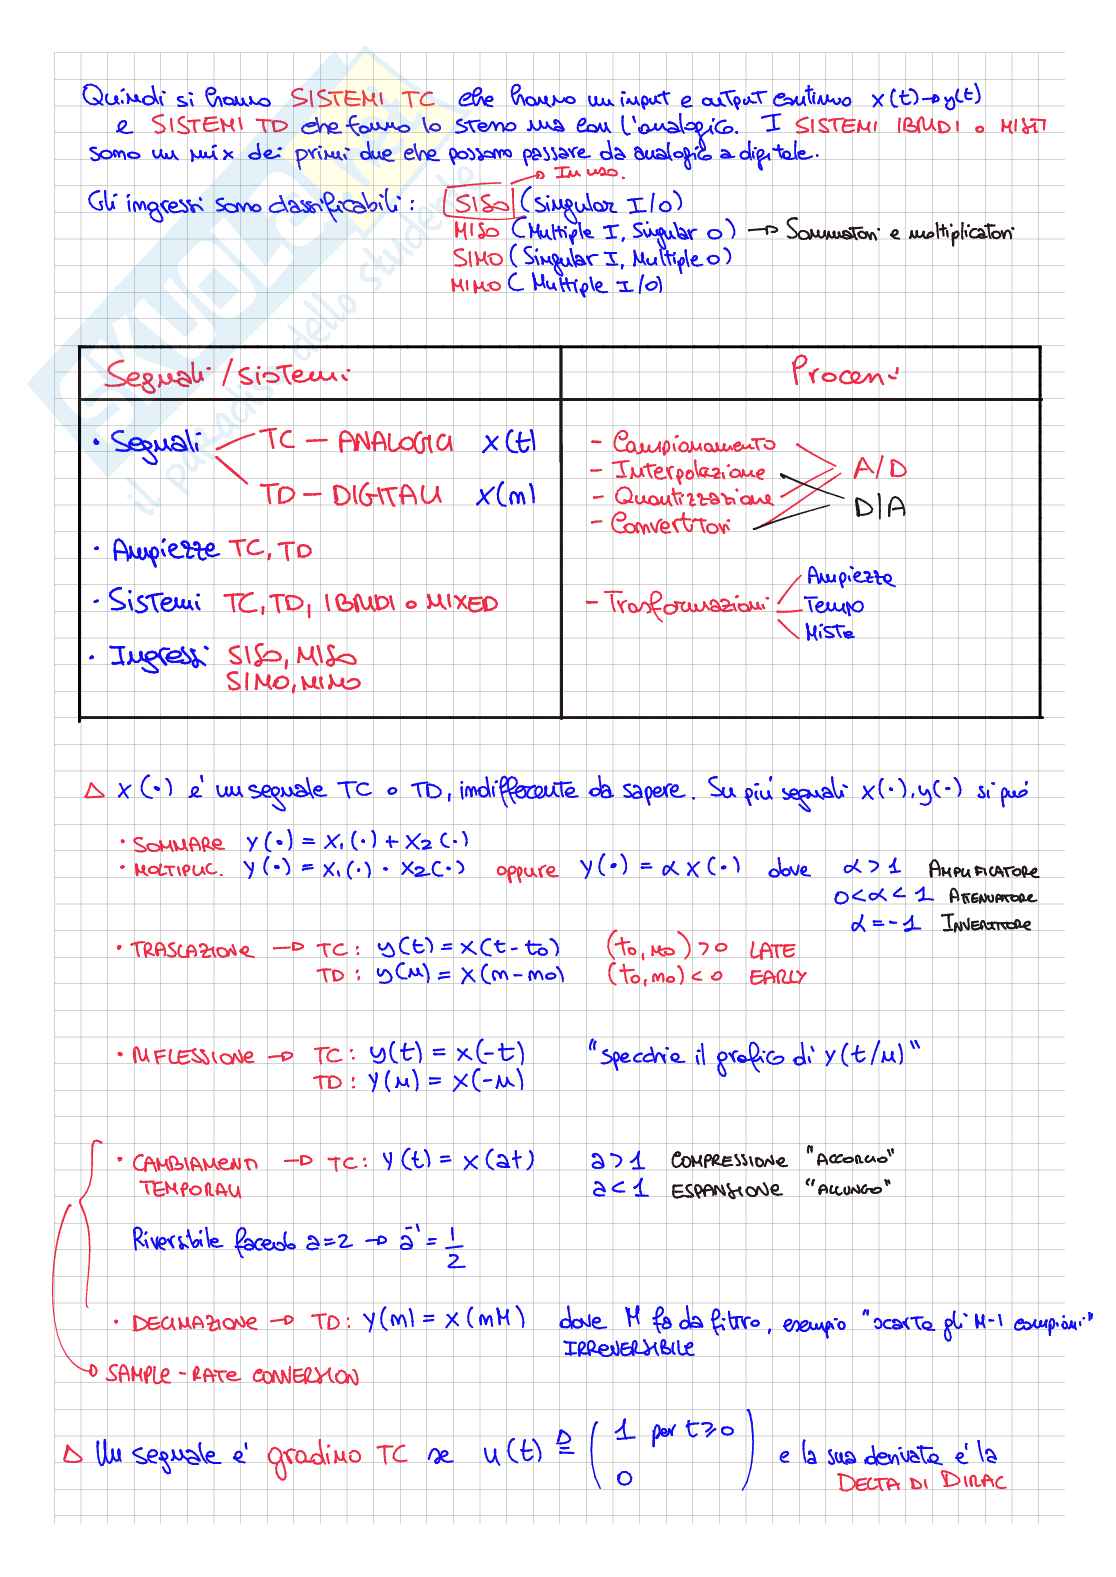 Quindi si hanno SISTEMI TC che hanno un input e output continuo x(t)→y(t)
e SISTEMI TD che fanno lo stesso ma con l'analogico. I SISTEMI IBRIDI o MISTI
sono un mix dei primi due che possono passare da analogico a digitale.
→ In uso.
Gli ingressi sono classificabili: SISO (Singular I/O)
MISO (Multiple I, Singular O) → Sommatori e moltiplicatori
SIMO (Singular I, Multiple O)
MIMO (Multiple I/O)
Segnali/Sistemi
Processi
• Segnali TC – ANALOGICI x(t)
TD – DIGITALI x(n)
• Ampiezze TC, TD
• Sistemi TC, TD, IBRIDI o MIXED
• Ingressi SISO, MISO
SIMO, MIMO
– Campionamento
– Interpolazione
– Quantizzazione
– Convertitori
A/D
D/A
– Trasformazioni
Ampiezze
Tempo
Miste
Δ x(•) è un segnale TC o TD, indifferente da sapere. Su più segnali x(•), y(•) si può
• SOMMARE y(•) = x₁(•) + x₂(•)
• MOLTIPLIC. y(•) = x₁(•) • x₂(•) oppure y(•) = α x(•) dove α > 1 AMPLIFICATORE
0 < α < 1 ATTENUATORE
α = -1 INVERTITORE
• TRASLAZIONE → TC: y(t) = x(t-t₀) (t₀, n₀) > 0 LATE
TD: y(n) = x(n-n₀) (t₀, n₀) < 0 EARLY
• RIFLESSIONE → TC: y(t) = x(-t) "specchia il grafico di y(t/n)"
TD: y(n) = x(-n)
• CAMBIAMENTI → TC: y(t) = x(at) a > 1 COMPRESSIONE "ACCORCIO"
TEMPORALI a < 1 ESPANSIONE "ALLUNGO"
Riversibile facendo a=2 → a⁻¹ = 1/2
• DECIMAZIONE → TD: y(n) = x(nM) dove M fa da filtro, esempio "scarta gli M-1 campioni"
IRREVERSIBILE
→ SAMPLE-RATE CONVERSION
Δ Un segnale è gradino TC se u(t) ≜ ( 1 per t ≥ 0
0 ) e la sua derivata è la
DELTA DI DIRAC
SKUOLA.net
il paradiso dello studente